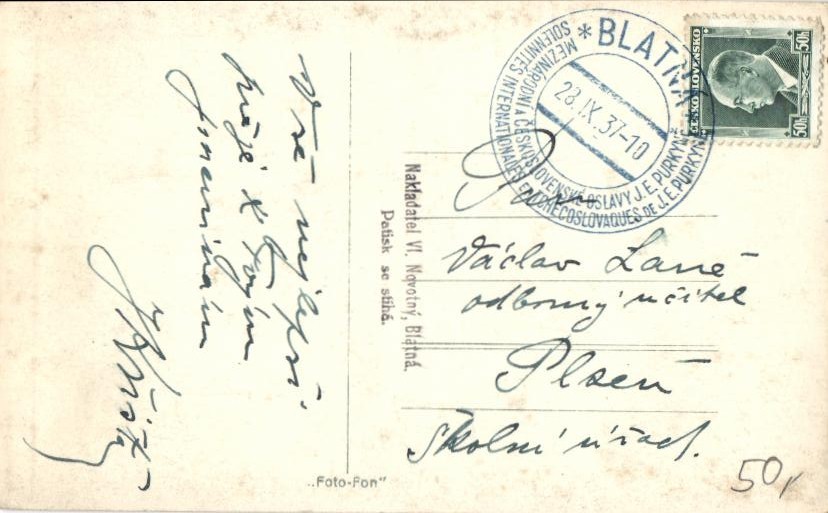 Vše nejlepší
přeje k Tvým
jmeninám
Nakladatel Vl. Novotný, Blatná.
Patisk se stíhá.
„Foto-Fon"
* BLATNÁ *
MEZINÁRODNÍ A ČESKOSLOVENSKÉ OSLAVY J. E. PURKYNĚ
SOLENNITÉS INTERNATIONALES ET TCHÉCOSLOVAQUES DE J. E. PURKYNĚ
28.IX.37-10
ČESKOSLOVENSKO
50h 50h
Pan
Václav Laně
odborný učitel
Plzeň
Školní úřad.
50,